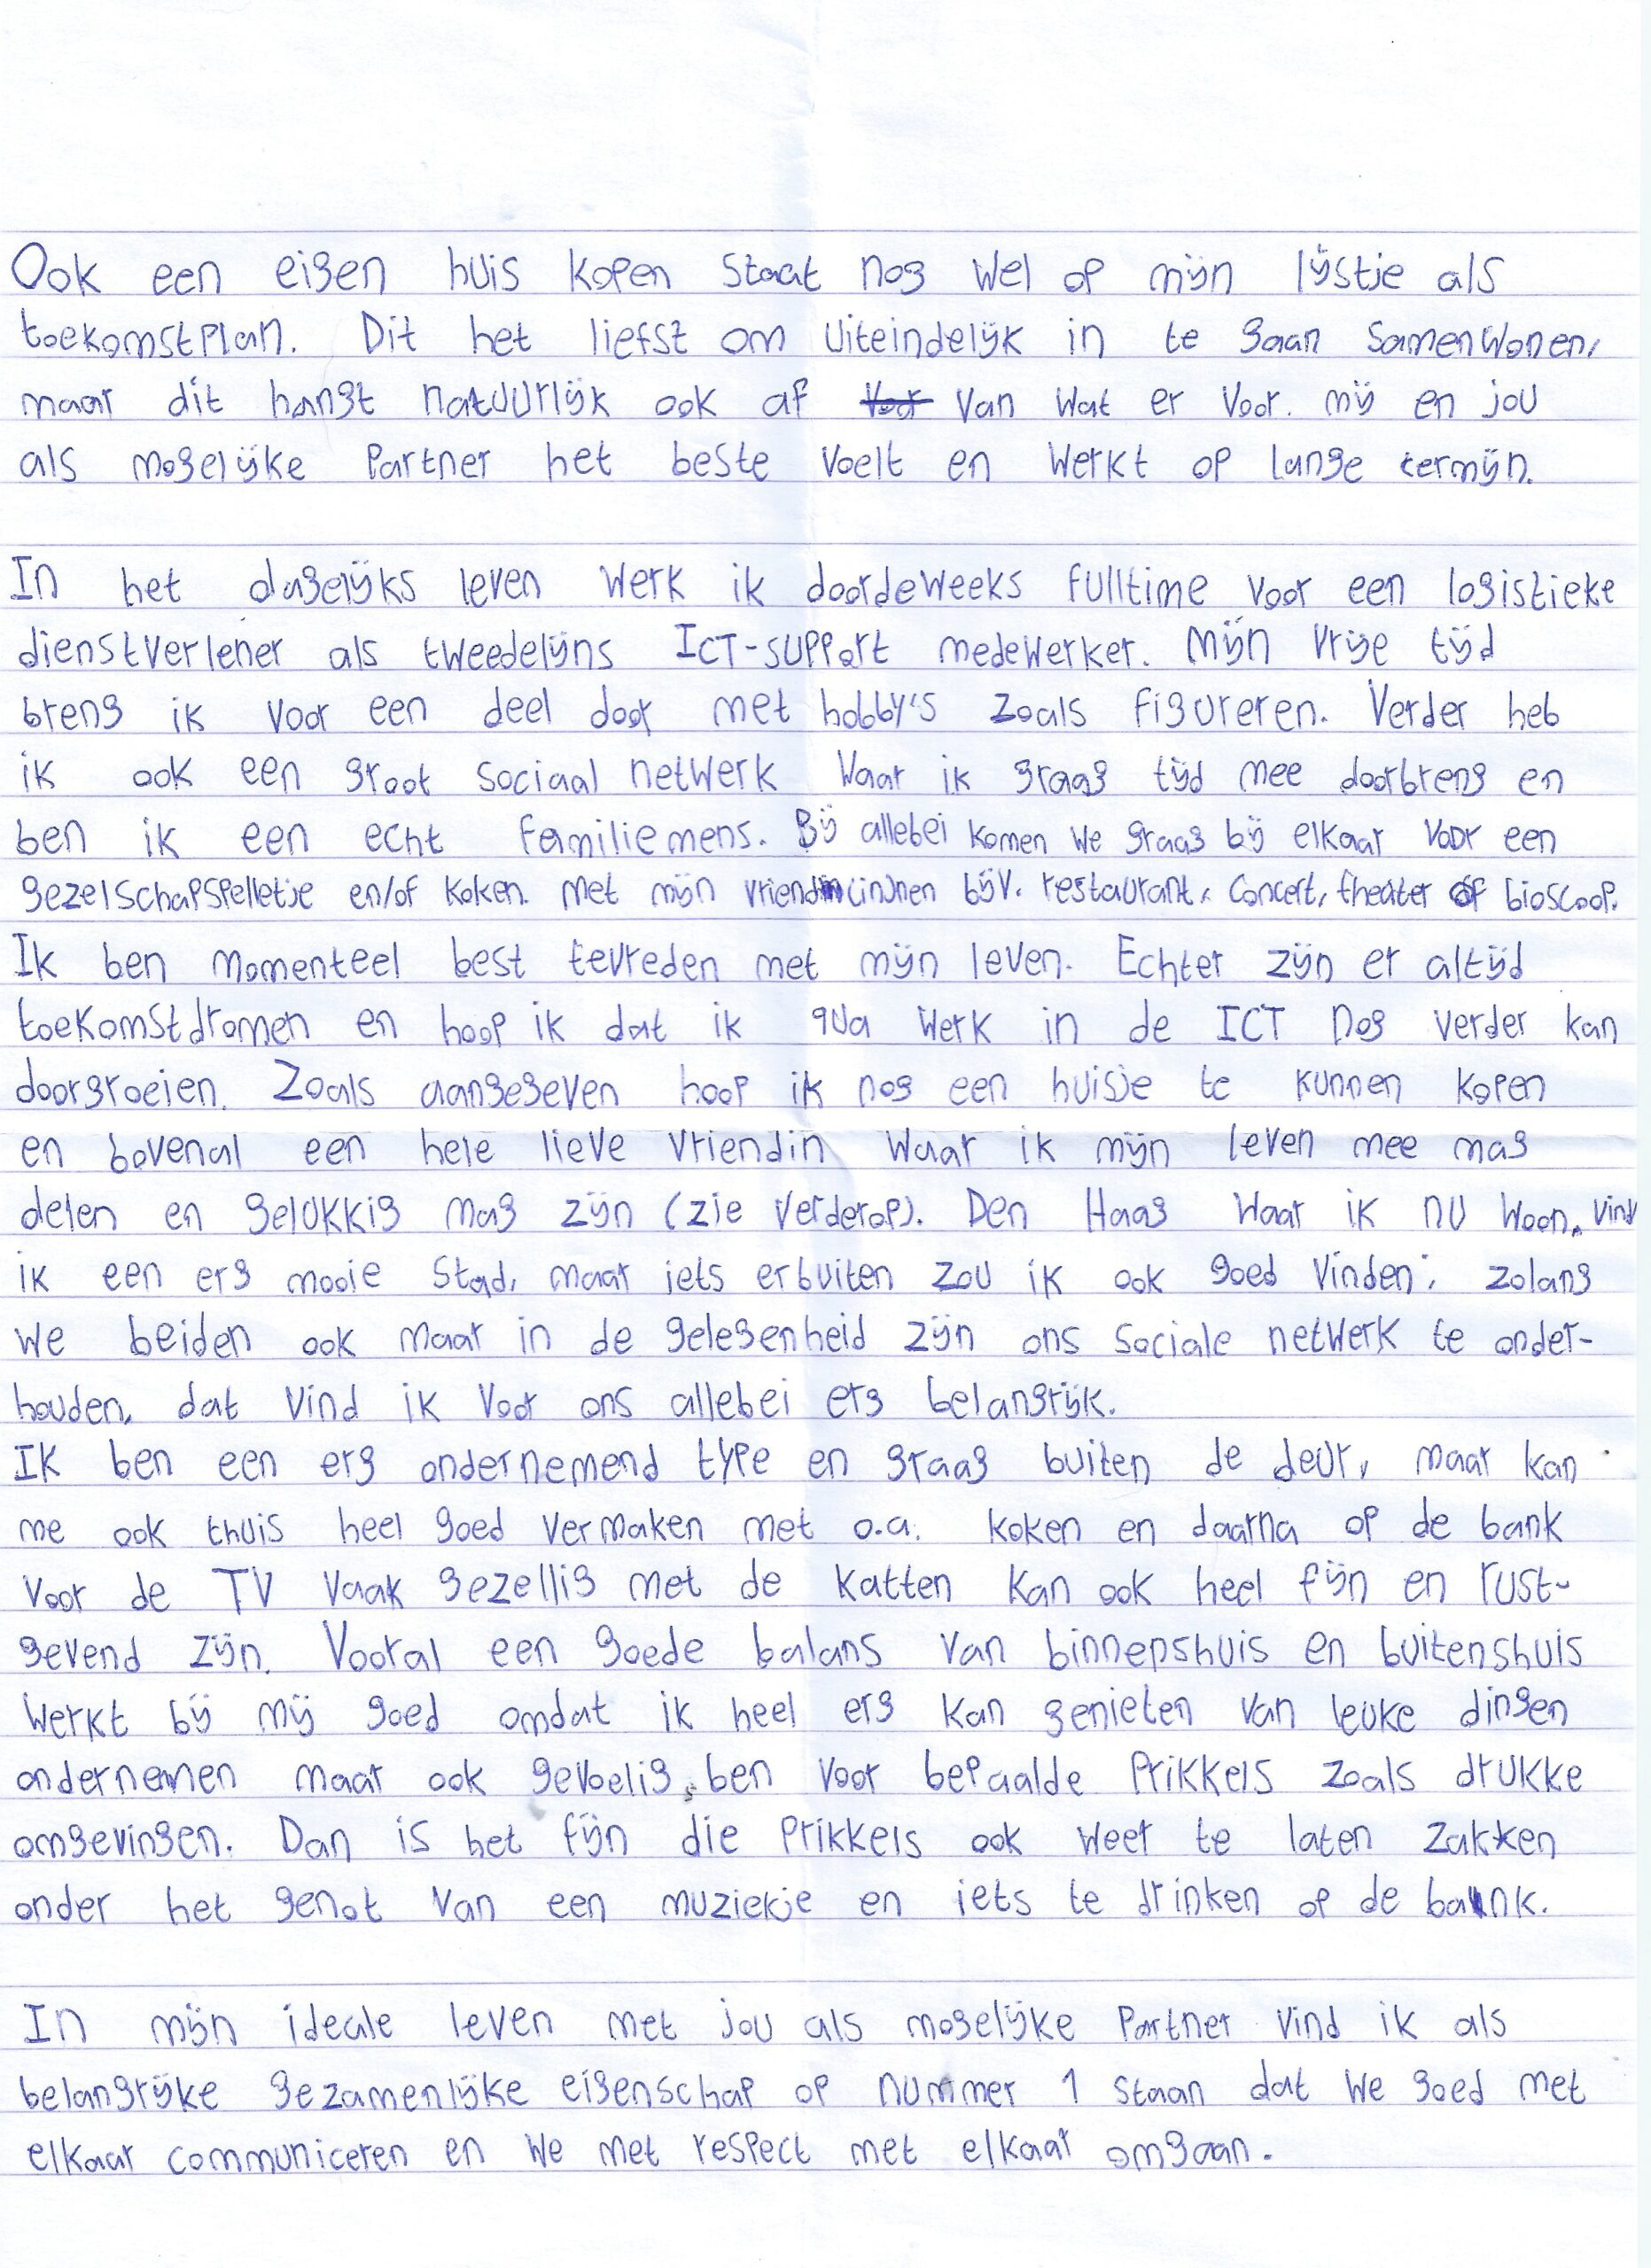 Ook een eigen huis kopen staat nog wel op mijn lijstje als
toekomstplan. Dit het liefst om uiteindelijk in te gaan samenwonen,
maar dit hangt natuurlijk ook af voor van wat er voor mij en jou
als mogelijke partner het beste voelt en werkt op lange termijn.

In het dagelijks leven werk ik doordeweeks fulltime voor een logistieke
dienstverlener als tweedelijns ICT-support medewerker. Mijn vrije tijd
breng ik voor een deel door met hobby's zoals figureren. Verder heb
ik ook een groot sociaal netwerk waar ik graag tijd mee doorbreng en
ben ik een echt familiemens. Bij allebei komen we graag bij elkaar voor een
gezelschapspelletje en/of koken. Met mijn vriend(inn)en bijv. restaurant, concert, theater of bioscoop.
Ik ben momenteel best tevreden met mijn leven. Echter zijn er altijd
toekomstdromen en hoop ik dat ik qua werk in de ICT nog verder kan
doorgroeien. Zoals aangegeven hoop ik nog een huisje te kunnen kopen
en bovenal een hele lieve vriendin waar ik mijn leven mee mag
delen en gelukkig mag zijn (zie verderop). Den Haag waar ik nu woon, vind
ik een erg mooie stad, maar iets erbuiten zou ik ook goed vinden; zolang
we beiden ook maar in de gelegenheid zijn ons sociale netwerk te onder-
houden, dat vind ik voor ons allebei erg belangrijk.
Ik ben een erg ondernemend type en graag buiten de deur, maar kan
me ook thuis heel goed vermaken met o.a. koken en daarna op de bank
voor de TV vaak gezellig met de katten kan ook heel fijn en rust-
gevend zijn. Vooral een goede balans van binnenshuis en buitenshuis
werkt bij mij goed omdat ik heel erg kan genieten van leuke dingen
ondernemen maar ook gevoelig ben voor bepaalde prikkels zoals drukke
omgevingen. Dan is het fijn die prikkels ook weer te laten zakken
onder het genot van een muziekje en iets te drinken op de bank.

In mijn ideale leven met jou als mogelijke partner vind ik als
belangrijke gezamenlijke eigenschap op nummer 1 staan dat we goed met
elkaar communiceren en we met respect met elkaar omgaan.